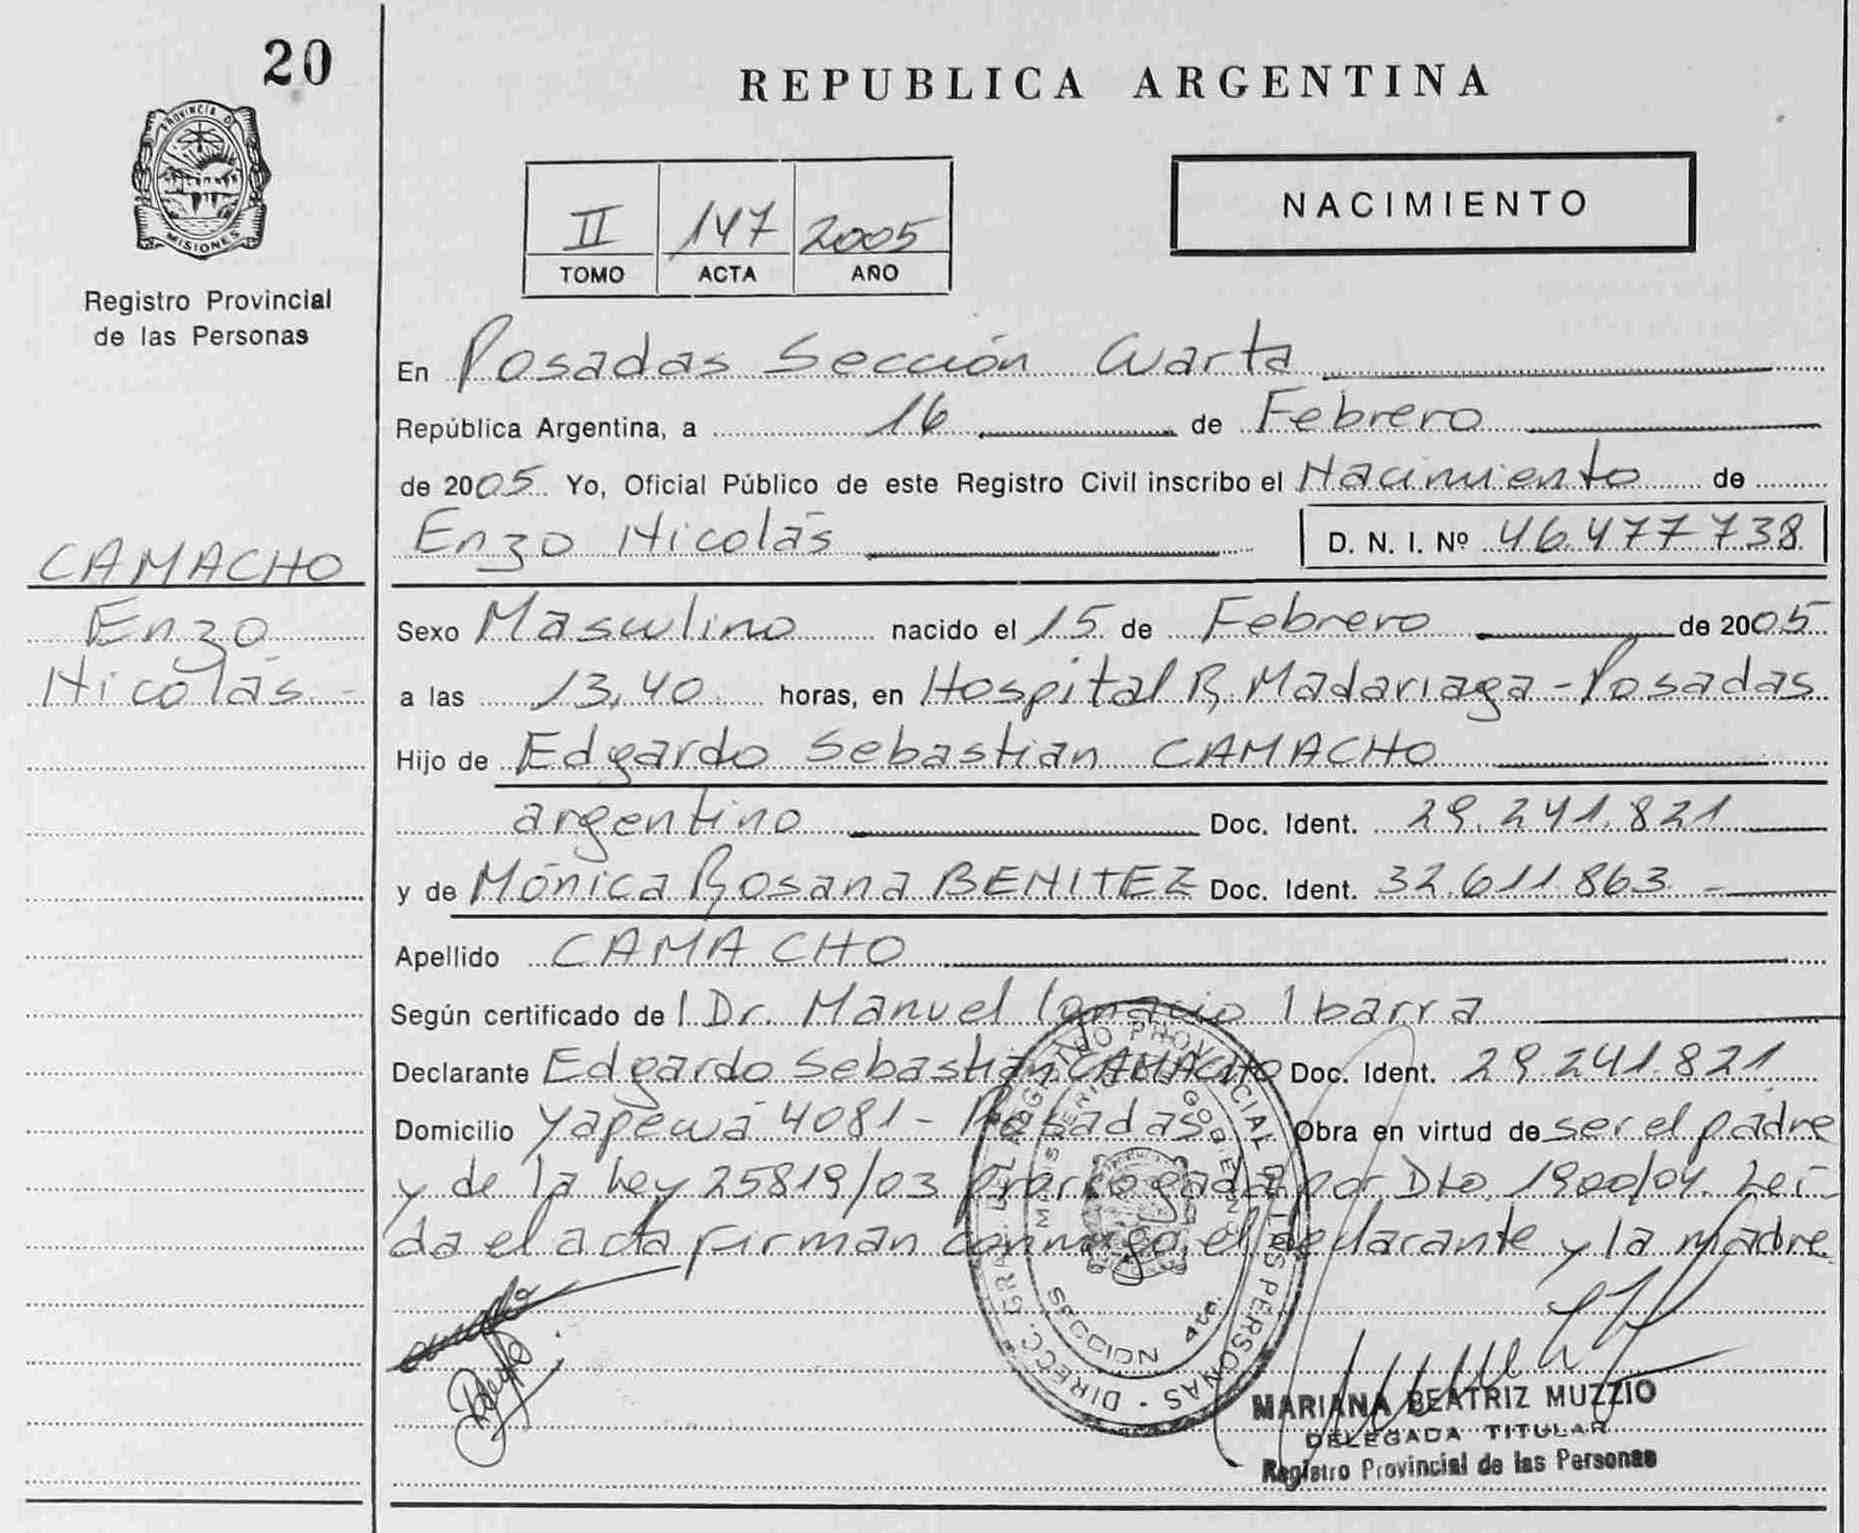 20
PROVINCIA DE
MISIONES
Registro Provincial
de las Personas
CAMACHO
Enzo
Nicolás
REPUBLICA ARGENTINA
II 147 2005
TOMO ACTA AÑO
NACIMIENTO
En Posadas Sección Cuarta
República Argentina, a 16 de Febrero
de 2005 Yo, Oficial Público de este Registro Civil inscribo el Nacimiento de
Enzo Nicolás D. N. I. Nº 46.477.738
Sexo Masculino nacido el 15 de Febrero de 2005
a las 13,40 horas, en Hospital R. Madariaga - Posadas
Hijo de Edgardo Sebastian CAMACHO
argentino Doc. Ident. 29.241.821
y de Mónica Rosana BENITEZ Doc. Ident. 32.611.863 -
Apellido CAMACHO
Según certificado de l Dr. Manuel Ignacio Ibarra
Declarante Edgardo Sebastián CAMACHO Doc. Ident. 29.241.821
Domicilio Yapeyú 4081 - Posadas. Obra en virtud de ser el padre
y de la Ley 25819/03 prorrogada por Dto. 1900/04. Leí-
da el acta firman conmigo, el declarante y la madre
DIRECC. GRAL. DEL REGISTRO PROVINCIAL DE LAS PERSONAS
MINISTERIO GOBIERNO
SECCION 4ta.
MARIANA BEATRIZ MUZZIO
DELEGADA TITULAR
Registro Provincial de las Personas